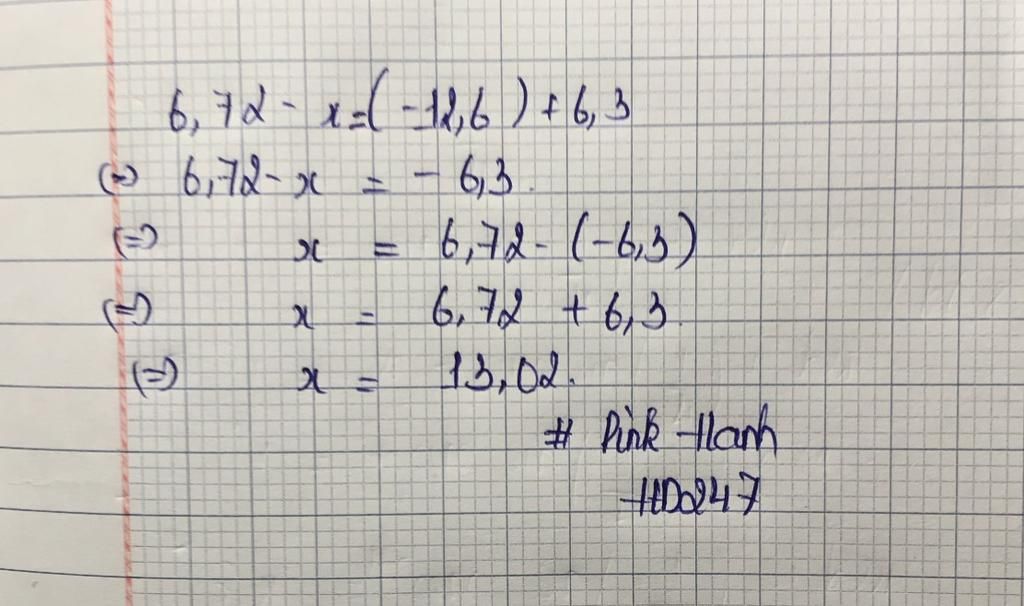 6,72 - x = (-12,6) + 6,3
(=) 6,72 - x = - 6,3.
(=) x = 6,72 - (-6,3)
(=) x = 6,72 + 6,3.
(=) x = 13,02.
# Pink Hanh
HD247